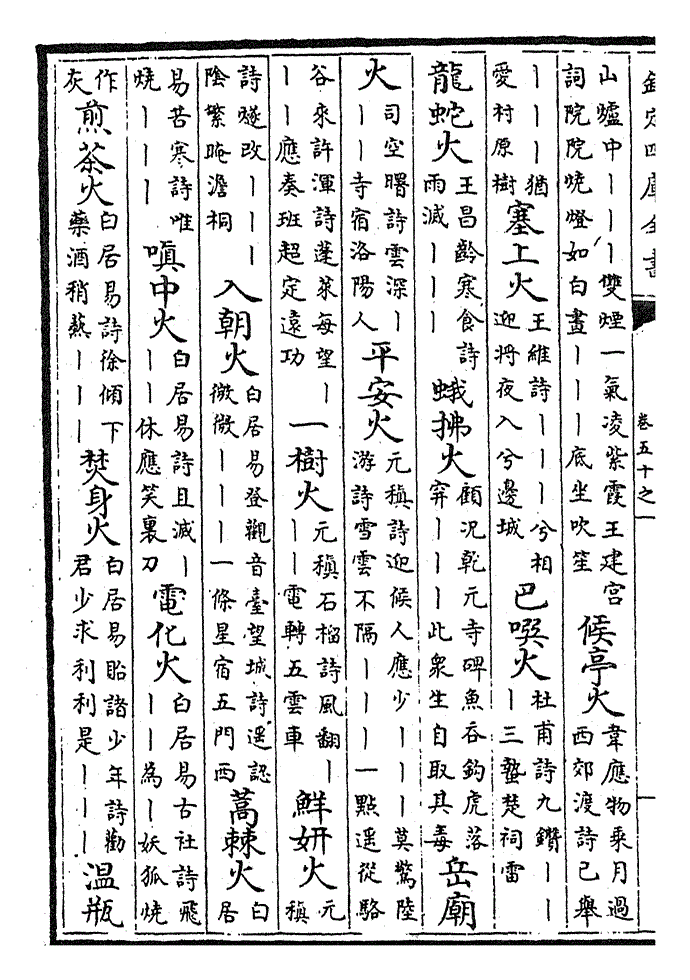 欽定四庫全書 卷五十之一
山爐中｜｜｜雙煙一氣凌紫霞王建宮詞院院燒燈如白晝｜｜｜底坐吹笙 候亭火 韋應物乘月過西郊渡詩已舉
｜｜｜猶愛村原樹 塞上火 王維詩｜｜｜兮相迎將夜入兮邊城 巴噀火 杜甫詩九鑽｜｜｜三蟄楚祠雷
龍蛇火 王昌齡寒食詩雨滅｜｜｜ 蛾拂火 顧況乾元寺碑魚吞鈎虎落穽｜｜｜此衆生自取其毒 岳廟
火 司空曙詩雲深｜｜｜寺宿洛陽人 平安火 元稹詩迎候人應少｜｜｜莫驚陸游詩雪雲不隔｜｜｜一點遥從駱
谷來許渾詩蓬萊每望｜｜｜應奏班超定遠功 一樹火 元稹石榴詩風翻｜｜｜電轉五雲車 鮮妍火 元稹
詩燧改｜｜｜陰繁晻澹桐 入朝火 白居易登觀音臺望城詩遥認微微｜｜｜一條星宿五門西 蒿棘火 白居
易苦寒詩唯燒｜｜｜ 嗔中火 白居易詩且滅｜｜｜休應笑裏刀 電化火 白居易古社詩飛｜｜為｜妖狐燒
作灰 煎茶火 白居易詩徐傾下藥酒稍爇｜｜｜ 焚身火 白居易貽諸少年詩勸君少求利利是｜｜｜ 温瓶